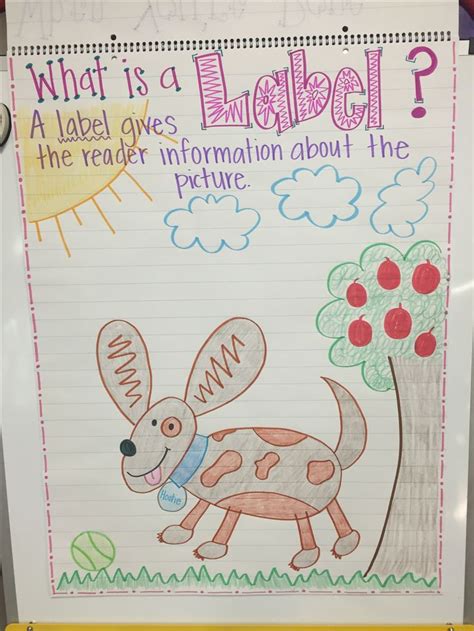 What is a Label?
A label gives
the reader information about the
picture.